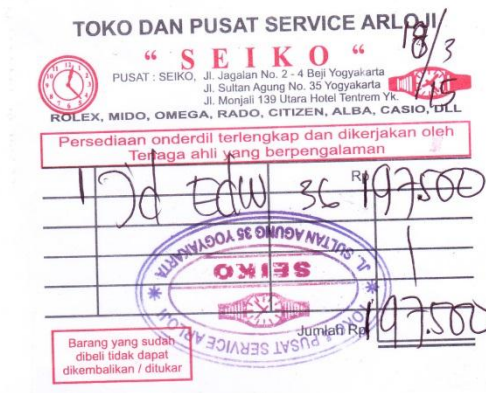 TOKO DAN PUSAT SERVICE ARLOJI
“ SEIKO “
PUSAT : SEIKO, Jl. Jagalan No. 2 - 4 Beji Yogyakarta
Jl. Sultan Agung No. 35 Yogyakarta
Jl. Monjali 139 Utara Hotel Tentrem Yk.
18/3
15
ROLEX, MIDO, OMEGA, RADO, CITIZEN, ALBA, CASIO, DLL
Persediaan onderdil terlengkap dan dikerjakan oleh
Tenaga ahli yang berpengalaman
1 Jd EDW 36 Rp 197.500
JL. SULTAN AGUNG 35 YOGYAKARTA
SEIKO
TOKO & PUSAT SERVICE ARLOJI
Jumlah Rp 197.500
Barang yang sudah
dibeli tidak dapat
dikembalikan / ditukar